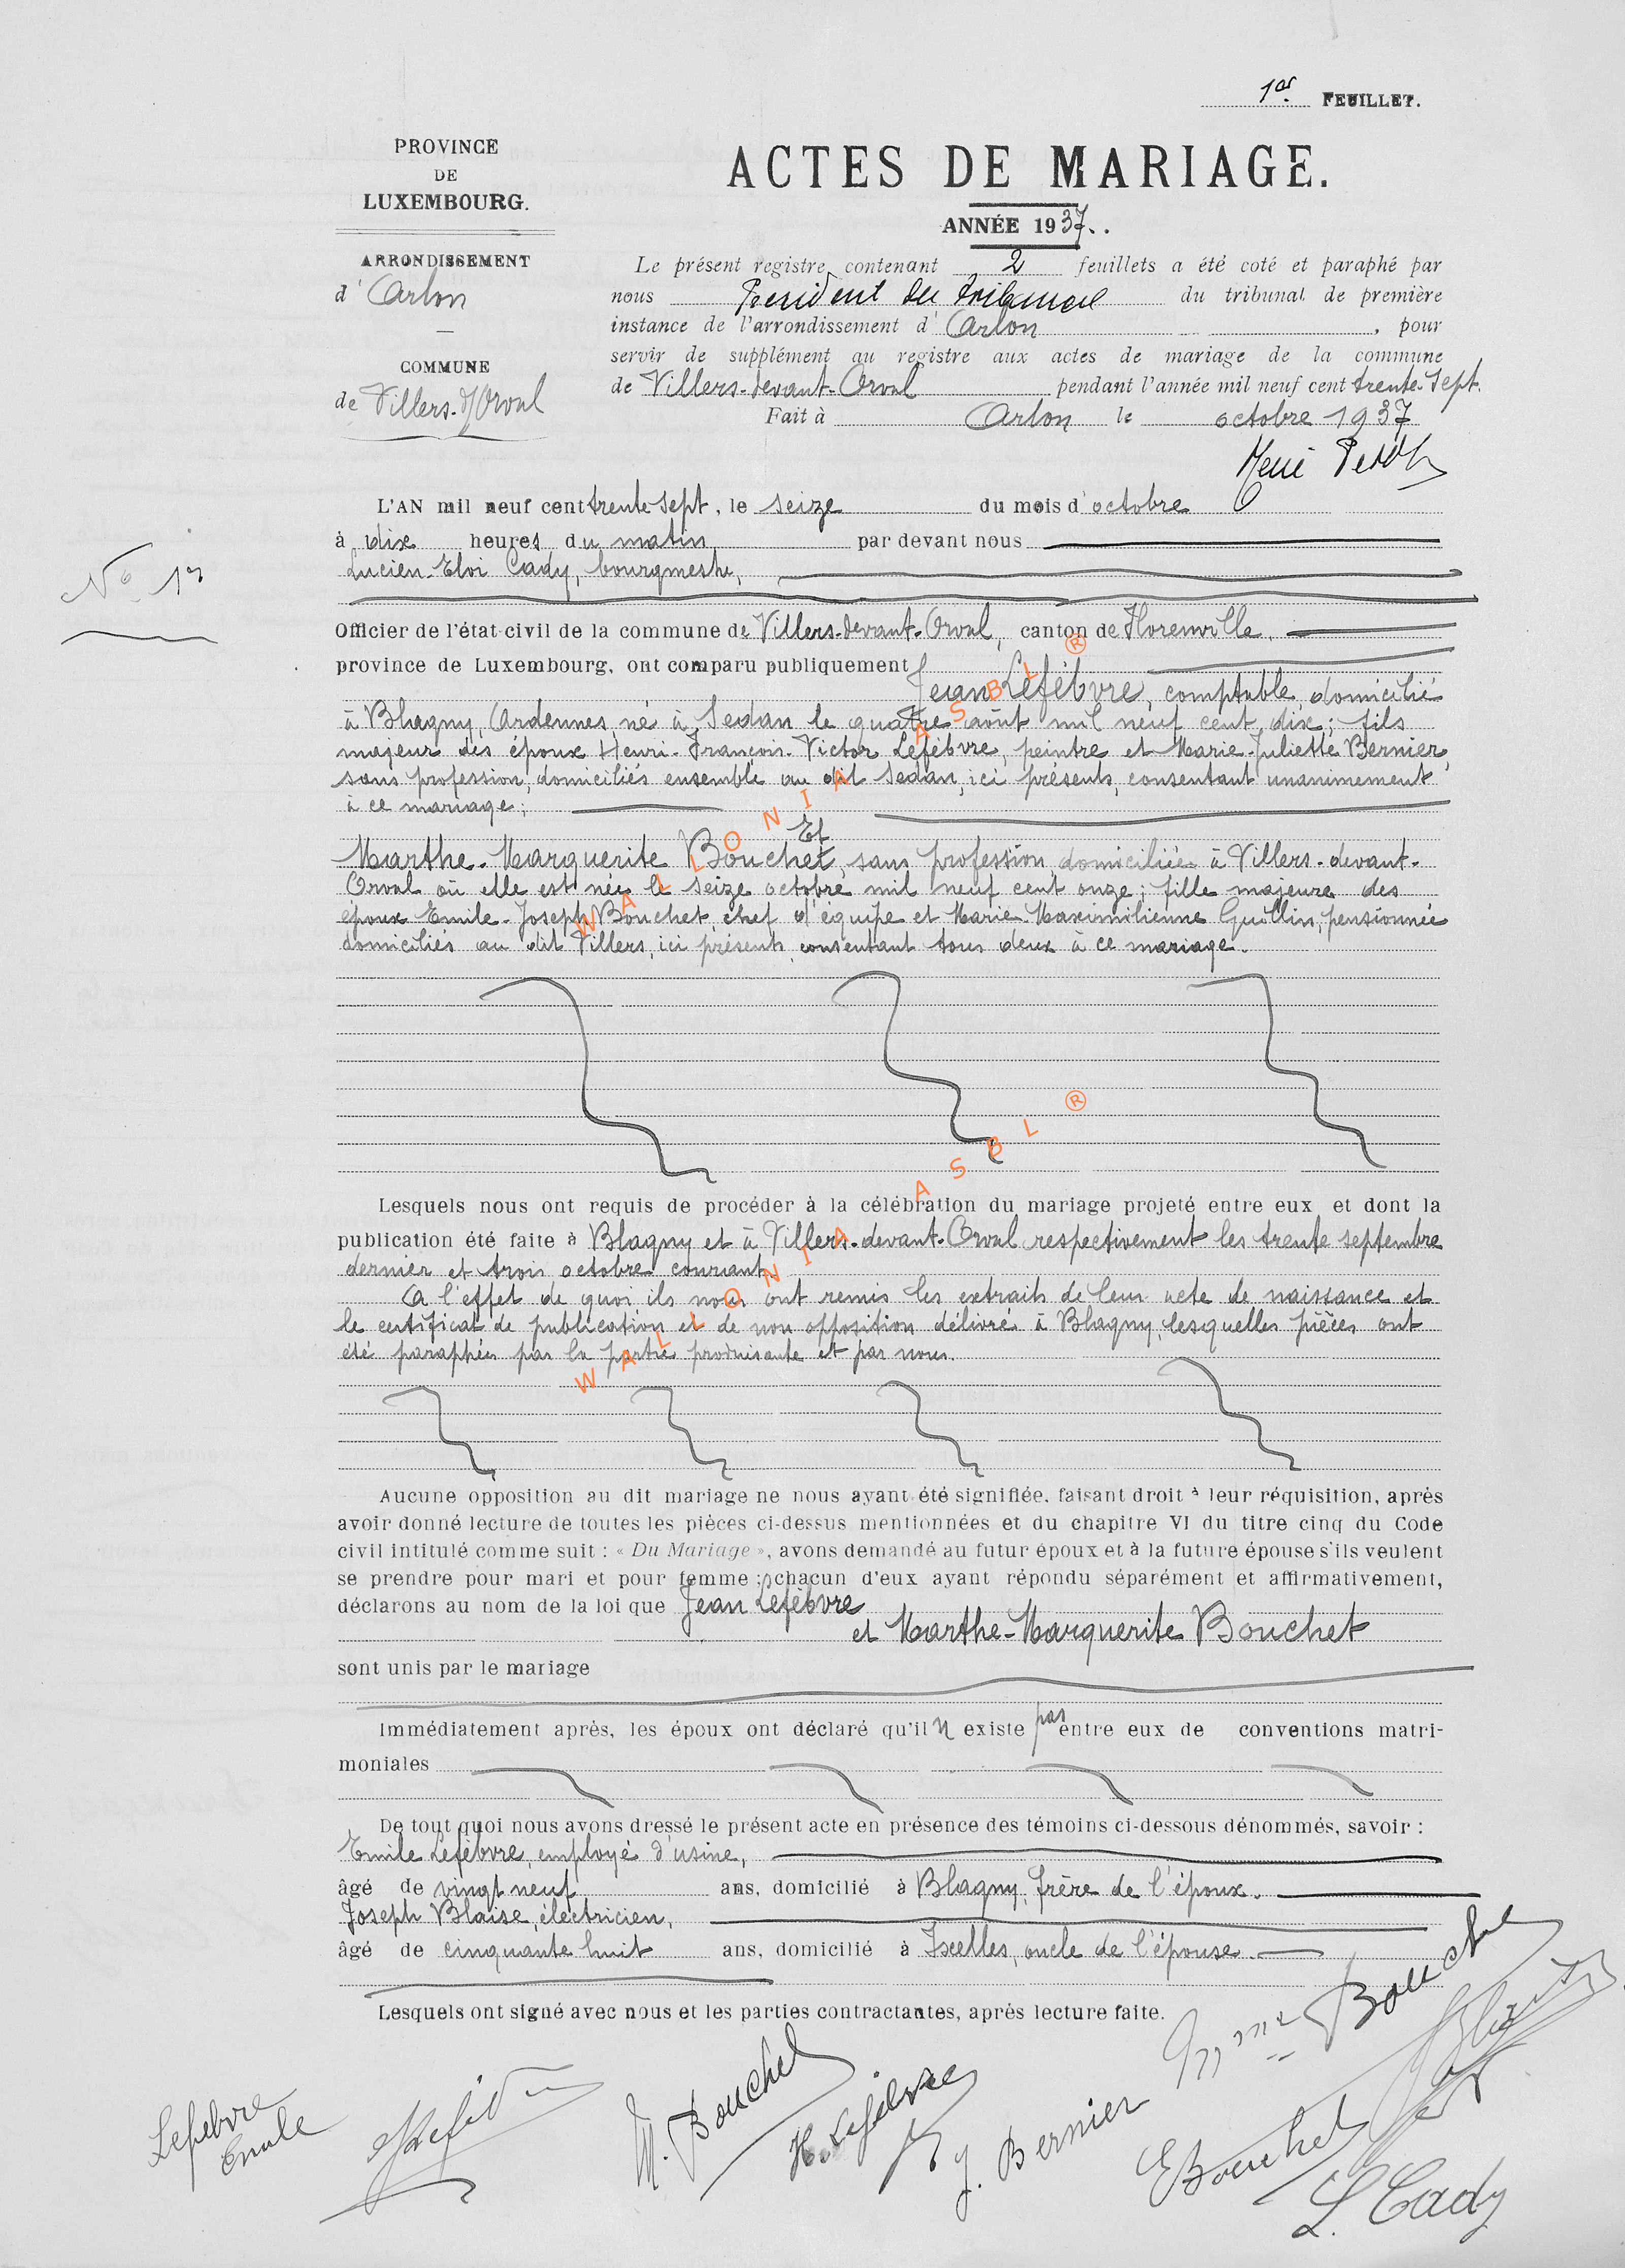 1er FEUILLET.
PROVINCE
DE
LUXEMBOURG.
ACTES DE MARIAGE.
ANNÉE 1937.
ARRONDISSEMENT
d' Arlon
COMMUNE
de Villers-d/Orval
Le présent registre contenant 2 feuillets a été coté et paraphé par
nous Président du tribunal du tribunal de première
instance de l'arrondissement d' Arlon , pour
servir de supplément au registre aux actes de mariage de la commune
de Villers-devant-Orval pendant l'année mil neuf cent trente-sept.
Fait à Arlon le octobre 1937
L'AN mil neuf cent trente sept, le seize du mois d'octobre
à dix heures du matin par devant nous
Lucien-Eloi Cady, bourgmestre,
No
Officier de l'état-civil de la commune de Villers-devant-Orval, canton de Florenville,
province de Luxembourg, ont comparu publiquement
Jean Lefèbvre, comptable, domicilié
à Blagny, Ardennes, né à Sedan le quatre août mil neuf cent dix; fils
majeur des époux Henri-François-Victor Lefèbvre, peintre et Marie-Juliette Bernier,
sans profession, domiciliés ensemble au dit Sedan, ici présents, consentant unanimement
à ce mariage;
Et
Marthe-Marguerite Bouchet, sans profession domiciliée à Villers-devant-
Orval où elle est née le seize octobre mil neuf cent onze; fille majeure des
époux Emile-Joseph Bouchet, chef d'équipe et Marie-Maximilienne Guillin, pensionnée
domiciliés au dit Villers, ici présents, consentant tous deux à ce mariage.
WALLONIA ASBL ®
Lesquels nous ont requis de procéder à la célébration du mariage projeté entre eux, et dont la
publication été faite à Blagny et à Villers-devant-Orval respectivement les trente septembre
dernier et trois octobre courant.
A l'effet de quoi ils nous ont remis les extraits de leur acte de naissance et
le certificat de publication et de non opposition délivré à Blagny, lesquelles pièces ont
été paraphées par la partie produisante et par nous.
WALLONIA ASBL ®
Aucune opposition au dit mariage ne nous ayant été signifiée, faisant droit à leur réquisition, après
avoir donné lecture de toutes les pièces ci-dessus mentionnées et du chapitre VI du titre cinq du Code
civil intitulé comme suit : « Du Mariage », avons demandé au futur époux et à la future épouse s'ils veulent
se prendre pour mari et pour femme ; chacun d'eux ayant répondu séparément et affirmativement,
déclarons au nom de la loi que Jean Lefèbvre
et Marthe-Marguerite Bouchet
sont unis par le mariage
Immédiatement après, les époux ont déclaré qu'il n existe pas entre eux de conventions matri-
moniales
De tout quoi nous avons dressé le présent acte en présence des témoins ci-dessous dénommés, savoir :
Emile Lefèbvre, employé d'usine,
âgé de vingt neuf ans, domicilié à Blagny, frère de l'époux.
Joseph Blaise, électricien,
âgé de cinquante huit ans, domicilié à Ixelles, oncle de l'épouse.
Lesquels ont signé avec nous et les parties contractantes, après lecture faite.
Mme Bouchet
Lefebvre
Emile
M. Bouchet
H. Lefebvre
J. Bernier
E Bouchet
L. Cady